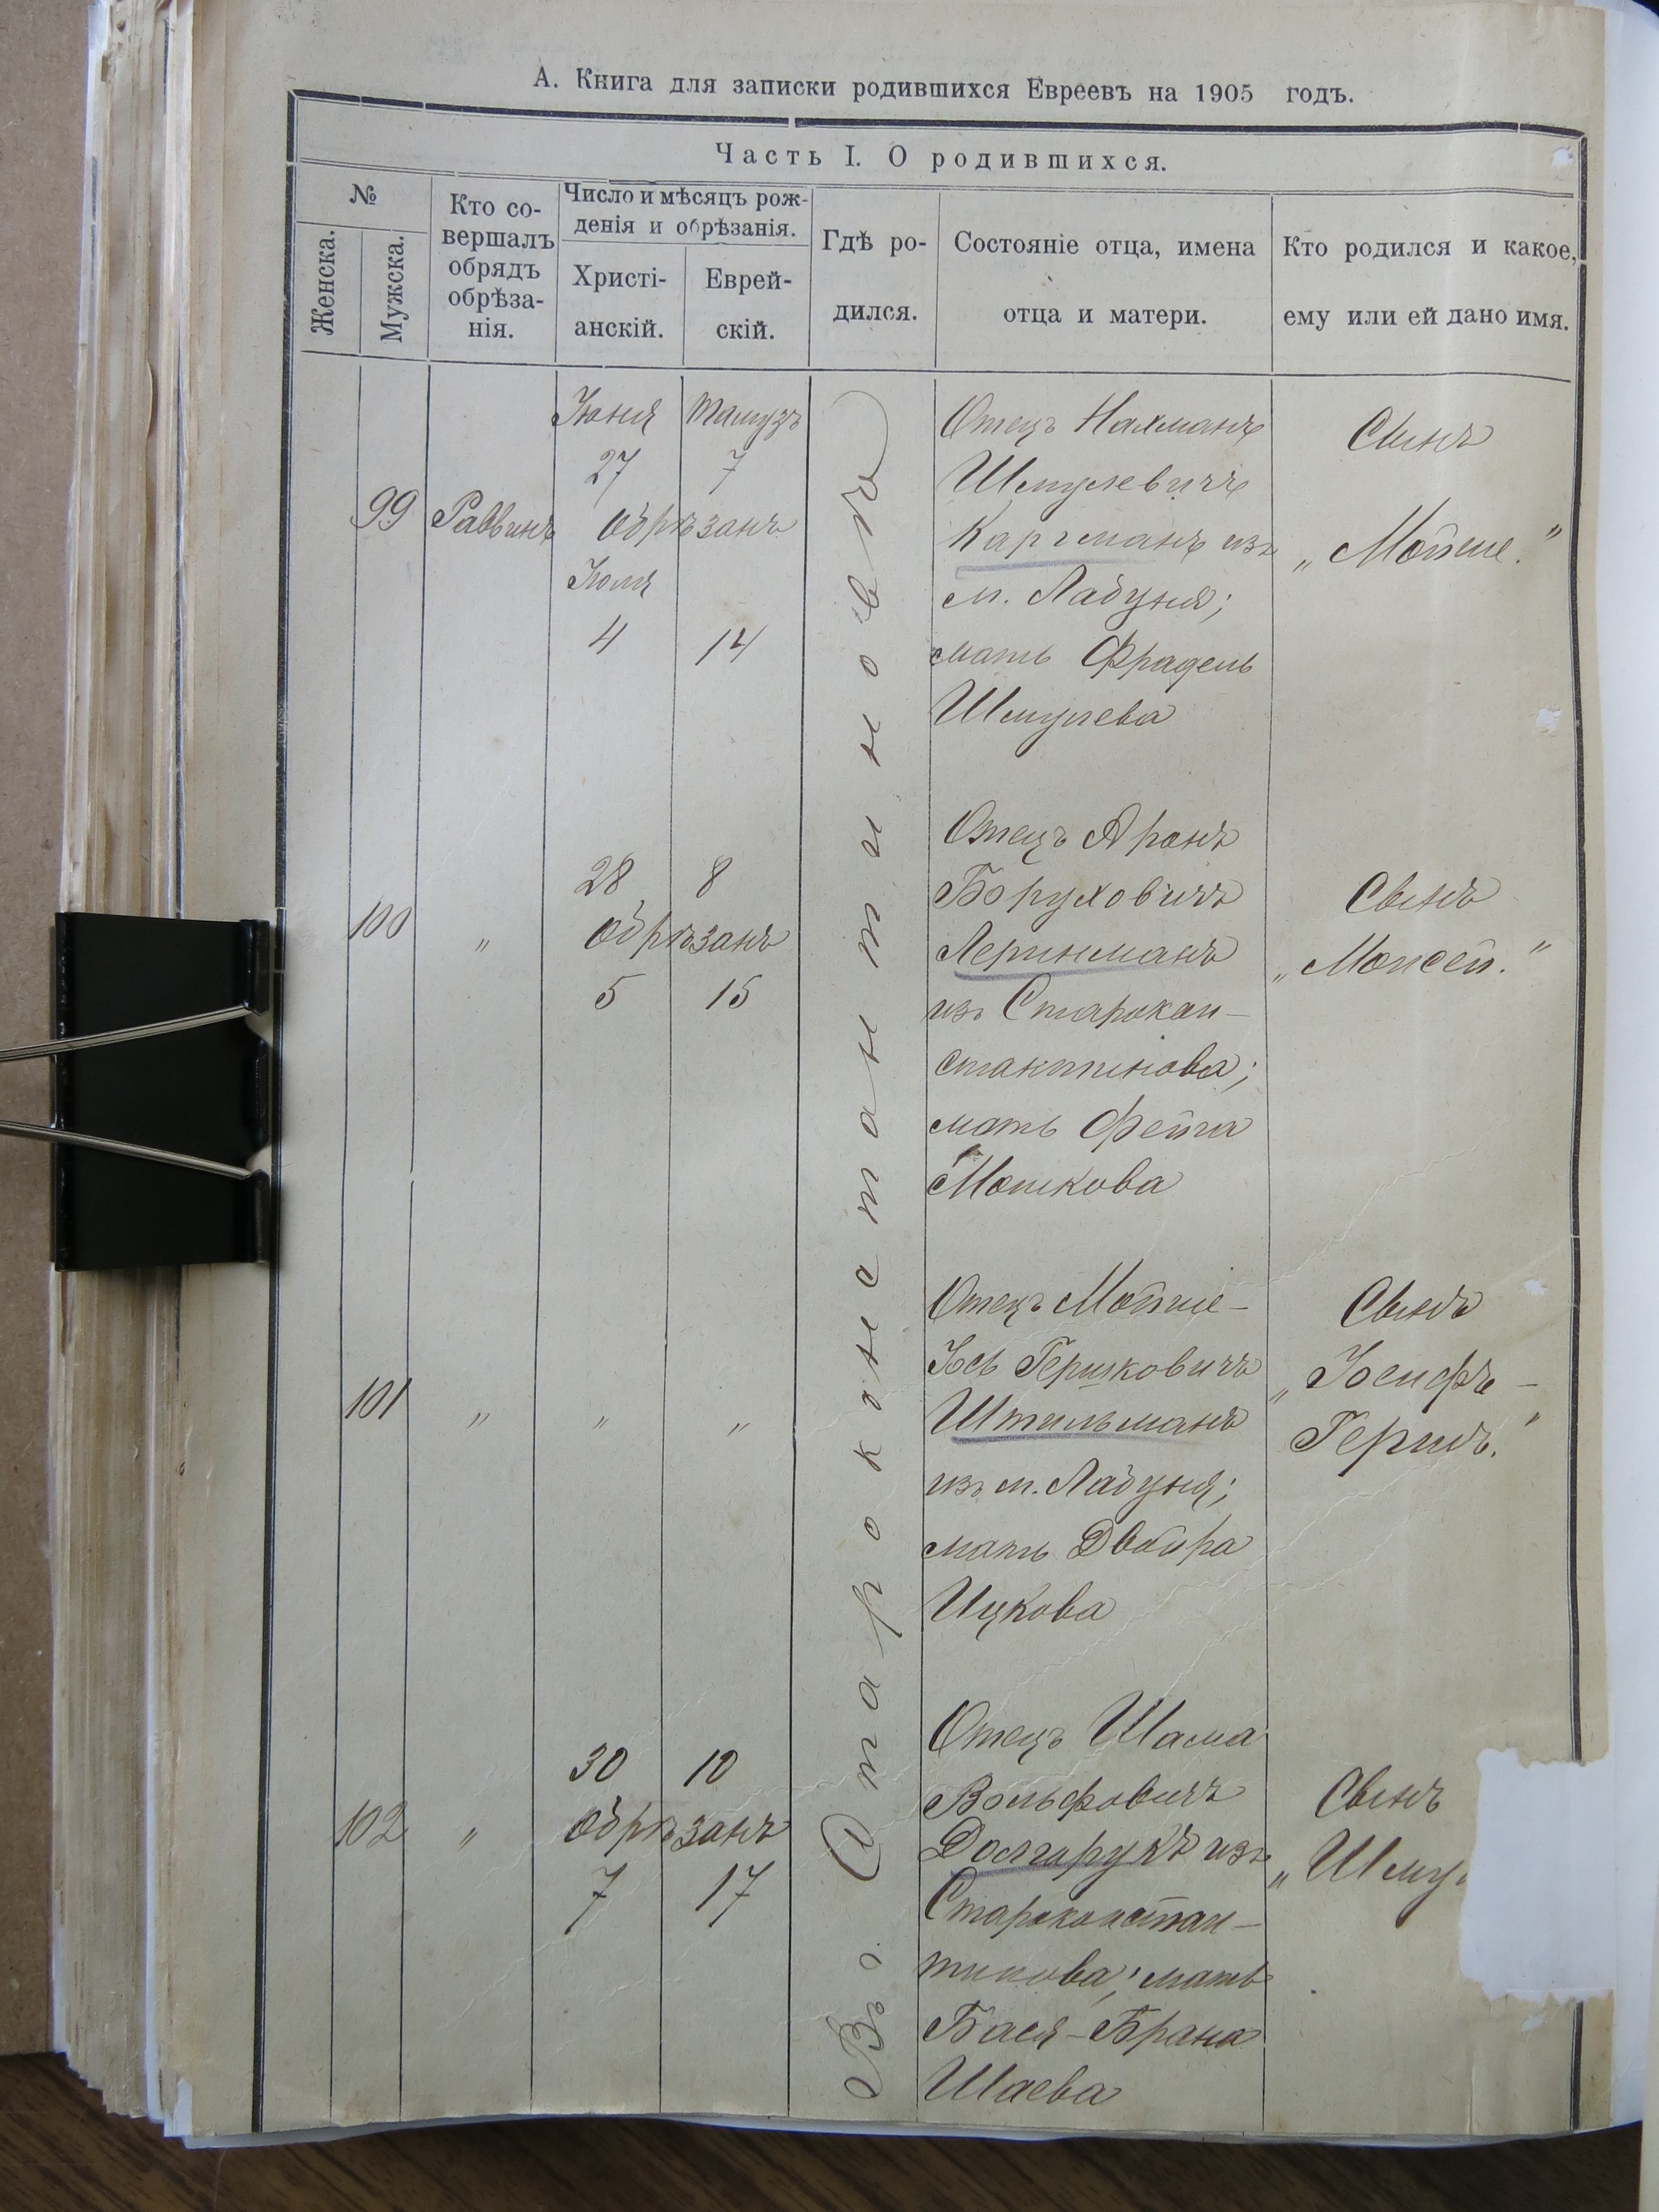 А. Книга для записки родившихся Евреевъ на 1905 годъ.
Часть I. О родившихся.
№
Женска.
Мужска.
Кто со-
вершалъ
обрядъ
обрѣза-
нія.
Число и мѣсяцъ рож-
денія и обрѣзанія.
Христі-
анскій.
Еврей-
скій.
Гдѣ ро-
дился.
Состояніе отца, имена
отца и матери.
Кто родился и какое,
ему или ей дано имя.
Въ Староконстантиновѣ
99
Раввинъ
Іюня Тамузъ
27 7
Обрѣзанъ
Іюля
4 14
Отецъ Нахманъ
Шмулевичъ
Каргманъ изъ
м. Лабуня;
мать Фрадель
Шмулева
Сынъ
„Мойше."
100
"
28 8
Обрѣзанъ
5 15
Отецъ Аронъ
Боруховичъ
Лернманъ
изъ Старокон-
стантинова;
мать Фейга
Мошкова
Сынъ
„Моисей."
101
"
" "
Отецъ Мойше-
Іось Гершковичъ
Штильманъ
изъ м. Лабуня;
мать Двойра
Ицкова
Сынъ
„Іосифъ-
Гершъ."
102
"
30 10
Обрѣзанъ
7 17
Отецъ Шама
Вольфовичъ
Долгарукъ изъ
Староконстан-
тинова; мать
Бася-Брана
Шаева
Сынъ
„Шму